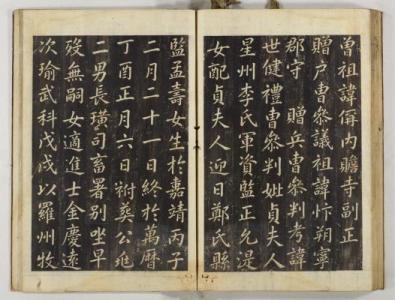 曾祖諱偋內贍寺副正
贈户曹參議祖諱忭朔寧
郡守 贈兵曹參判考諱
世健禮曹參判妣貞夫人
星州李氏軍資監正允湜
女配貞夫人迎日鄭氏縣
監孟壽女生於嘉靖丙子
二月二十一日終於萬曆
丁酉正月六日祔葬公兆
二男長璜司畜署别坐早
歿無嗣女適進士金慶遠
次瑜武科戊戌以羅州牧